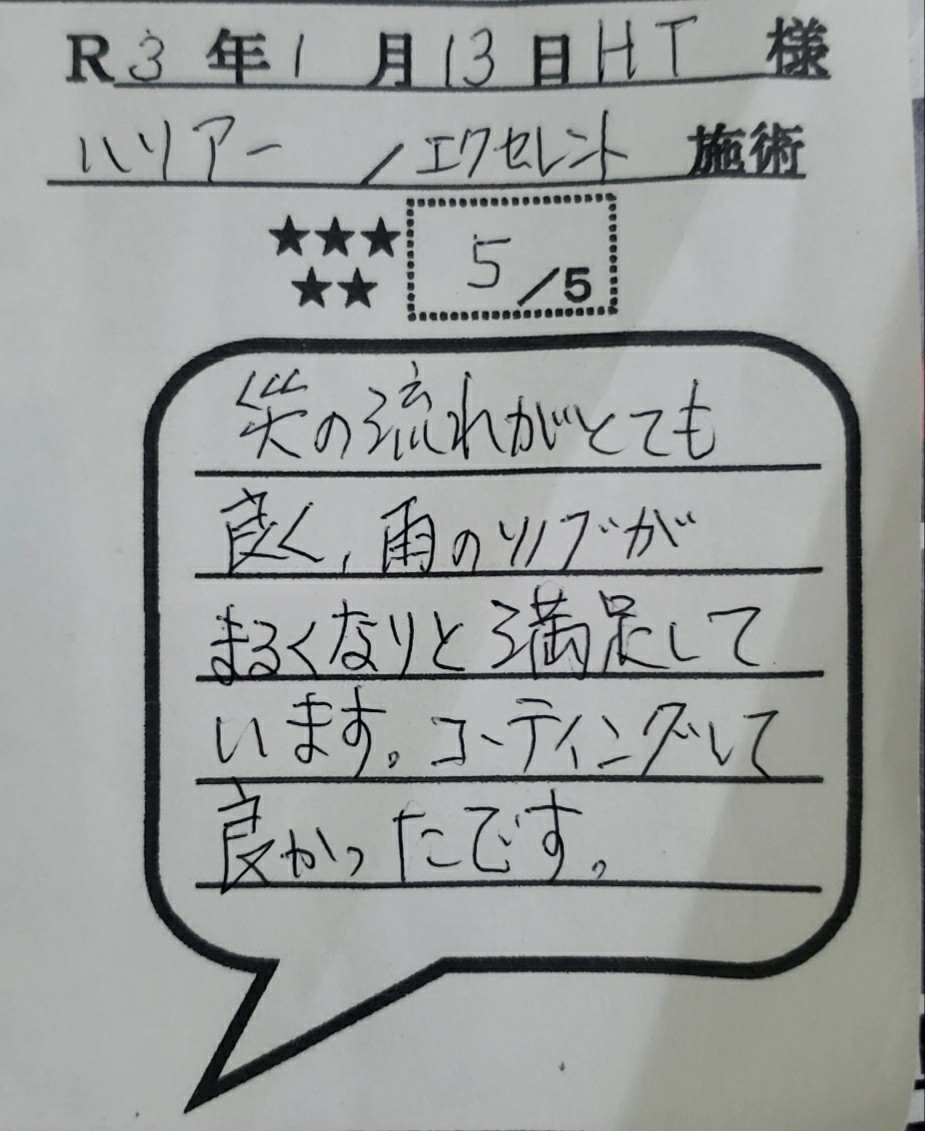 R3年1月13日HT様
ハリアー /エクセレント 施術
★★★
★★
5/5
の流れがとても
良く、雨のツブが
まるくなりと満足して
います。コーティングして
良かったです。